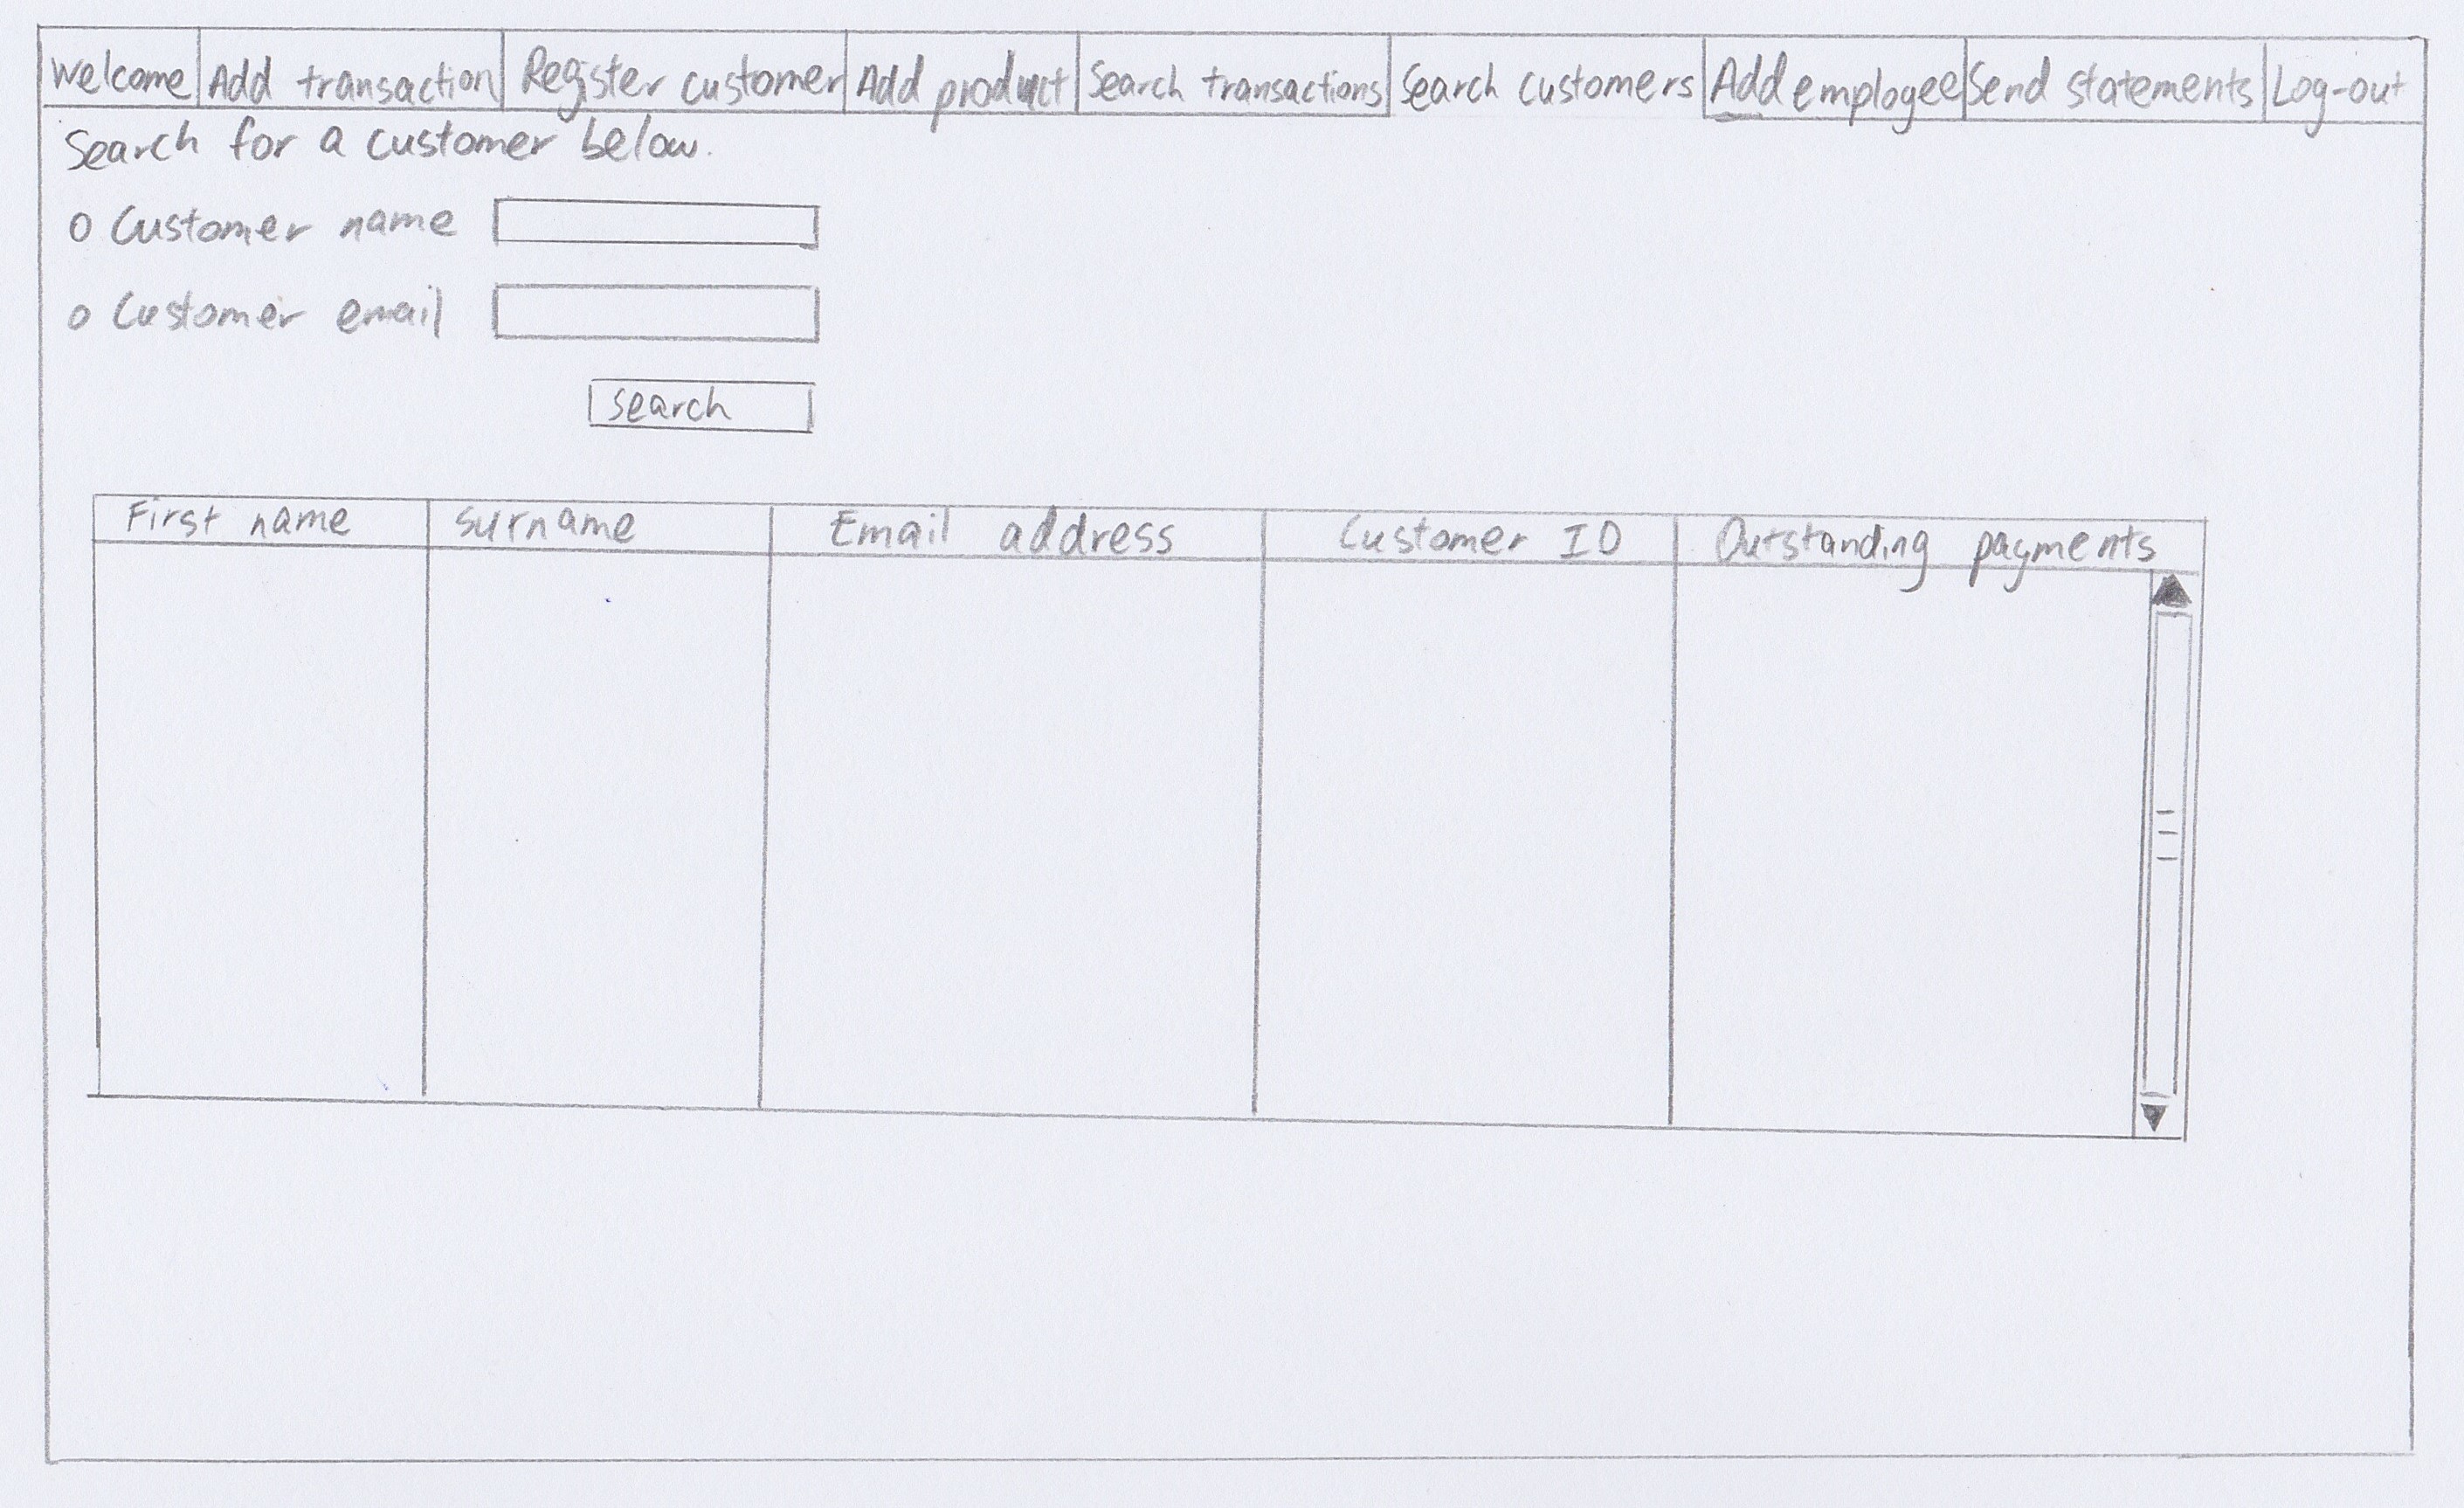 Welcome Add transaction Register customer Add product Search transactions Search customers Add employee Send statements Log-out
Search for a customer below.
o Customer name
o Customer email
search
First name surname Email address Customer ID Outstanding payments